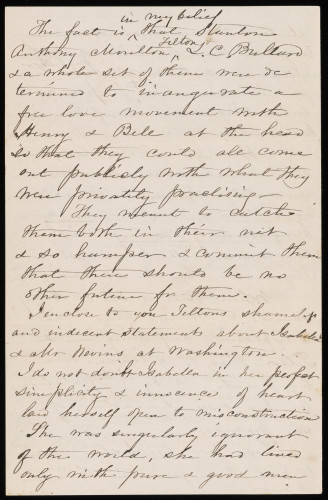 in my belief
The fact is ^ that Stanton
Anthony Moulton ^ Tilton & L. C. Bullard
& a whole set of them were de
termined to inaugurate a
free love movement with
Henry & Belle at the head
so that they could all come
out publicly with what they
were privately practising –
They meant to catch
them both in their net
& so hamper & commit them
that there should be no
other future for them.
I enclose to you Tiltons shameful
and indecent statements about Isabella
& Mr Nevins at Washington.
I do not doubt Isabella in her perfect
simplicity & innocence of heart
laid herself open to misconstruction
She was singularly ignorant
of the world, she had lived
only with pure & good men